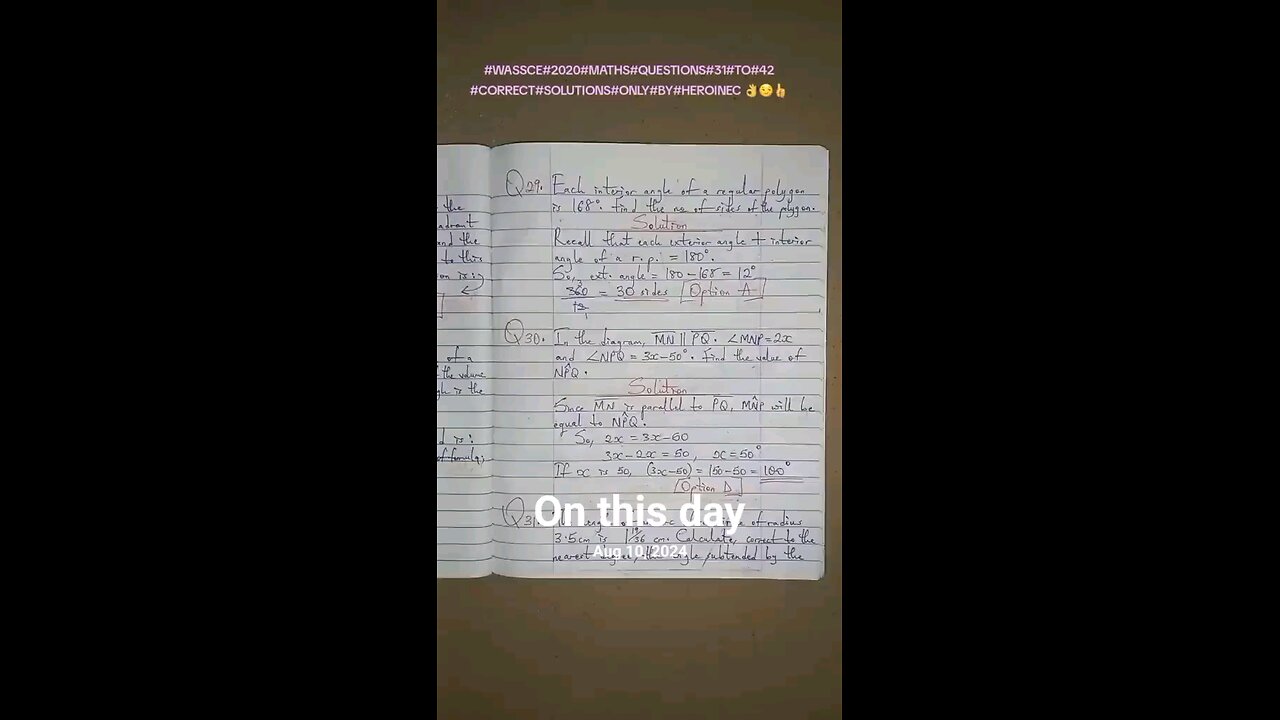 #WASSCE#2020#MATHS#QUESTIONS#31#TO#42
#CORRECT#SOLUTIONS#ONLY#BY#HEROINEC 👌😏☝
the
adrant
and the
to this
on is:
of a
the volume
gh is the
d is:
of formula;
Q29. Each interior angle of a regular polygon
is 168°. find the no of sides of the polygon.
Solution
Recall that each exterior angle + interior
angle of a r.p. = 180°.
So, ext. angle = 180-168 = 12°
360/12 = 30 sides Option A
Q30. In the diagram, MN || PQ. ∠MNP=2x
and ∠NPQ = 3x-50°. find the value of
NP̂Q.
Solution
Since MN is parallel to PQ, MN̂P will be
equal to NP̂Q.
So, 2x = 3x-50
3x-2x = 50, x=50°
If x is 50, (3x-50) = 150-50 = 100°
Option D
On this day
Aug 10, 2024
Q31. of radius
3.5cm is 1 19/36 cm. Calculate, correct to the
nearest degree, the angle subtended by the